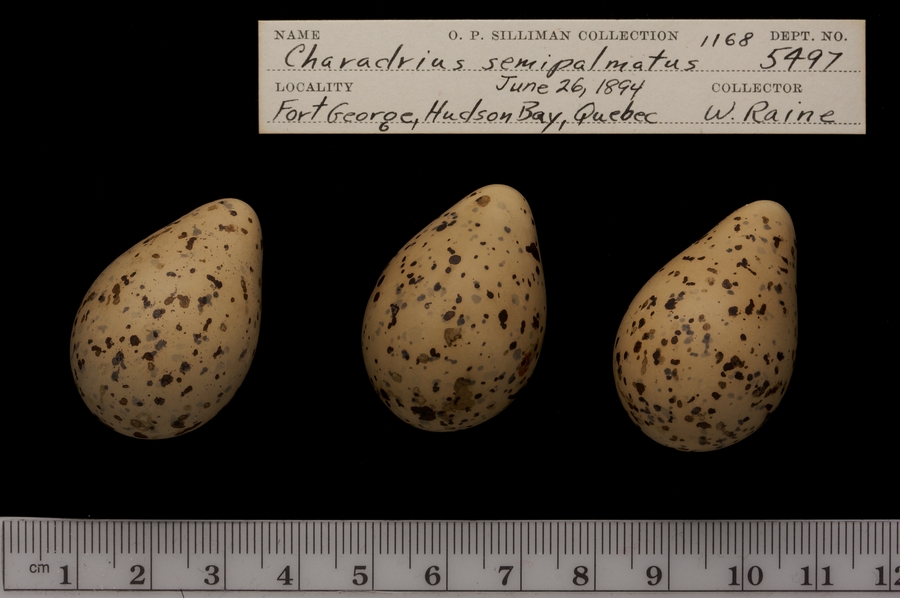 NAME O. P. SILLIMAN COLLECTION 1168 DEPT. NO.
Charadrius semipalmatus 5497
LOCALITY June 26, 1894 COLLECTOR
Fort George, Hudson Bay, Quebec W. Raine
cm 1 2 3 4 5 6 7 8 9 10 11 12